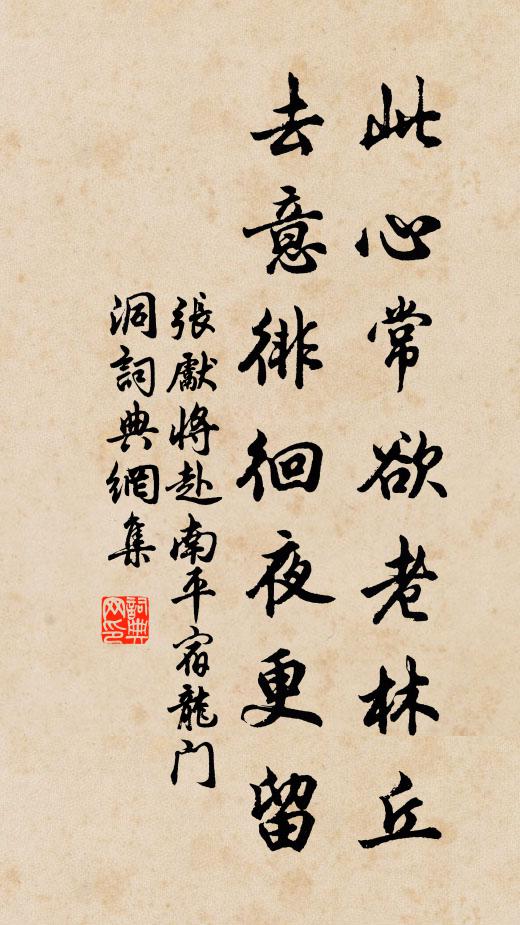 此心常欲老林丘
去意徘徊夜更留
張獻將赴南平宿龍门
洞詞典網集
詞典
网印